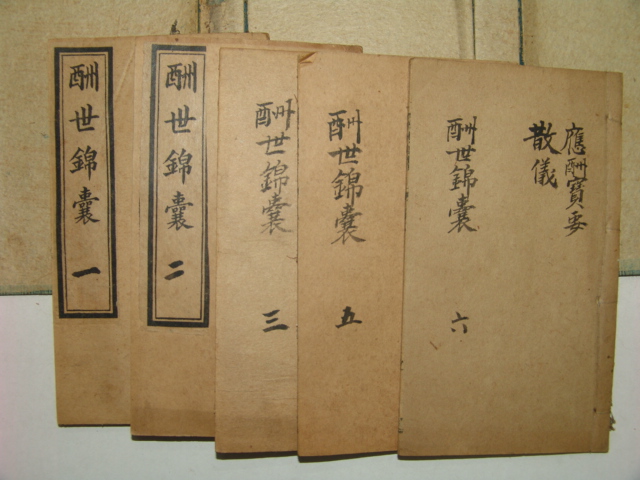 酬世錦囊 一
酬世錦囊 二
酬世錦囊 三
酬世錦囊 五
應酬寳要
散儀
酬世錦囊 六